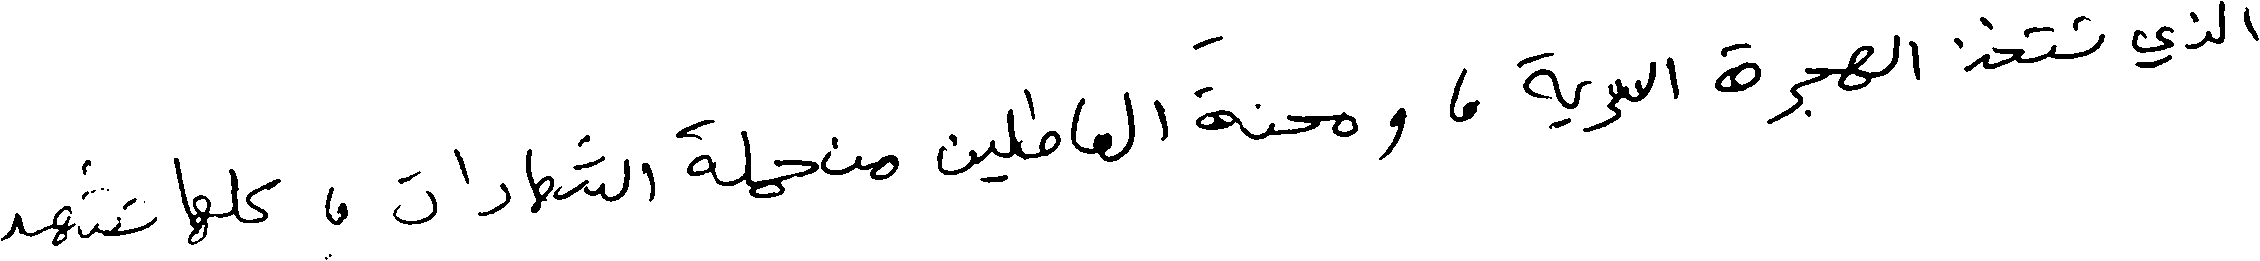 الذي تتخذ الهجرة السرية ، ومحنة العاطلين من حملة الشهادات ، كلها تشهد